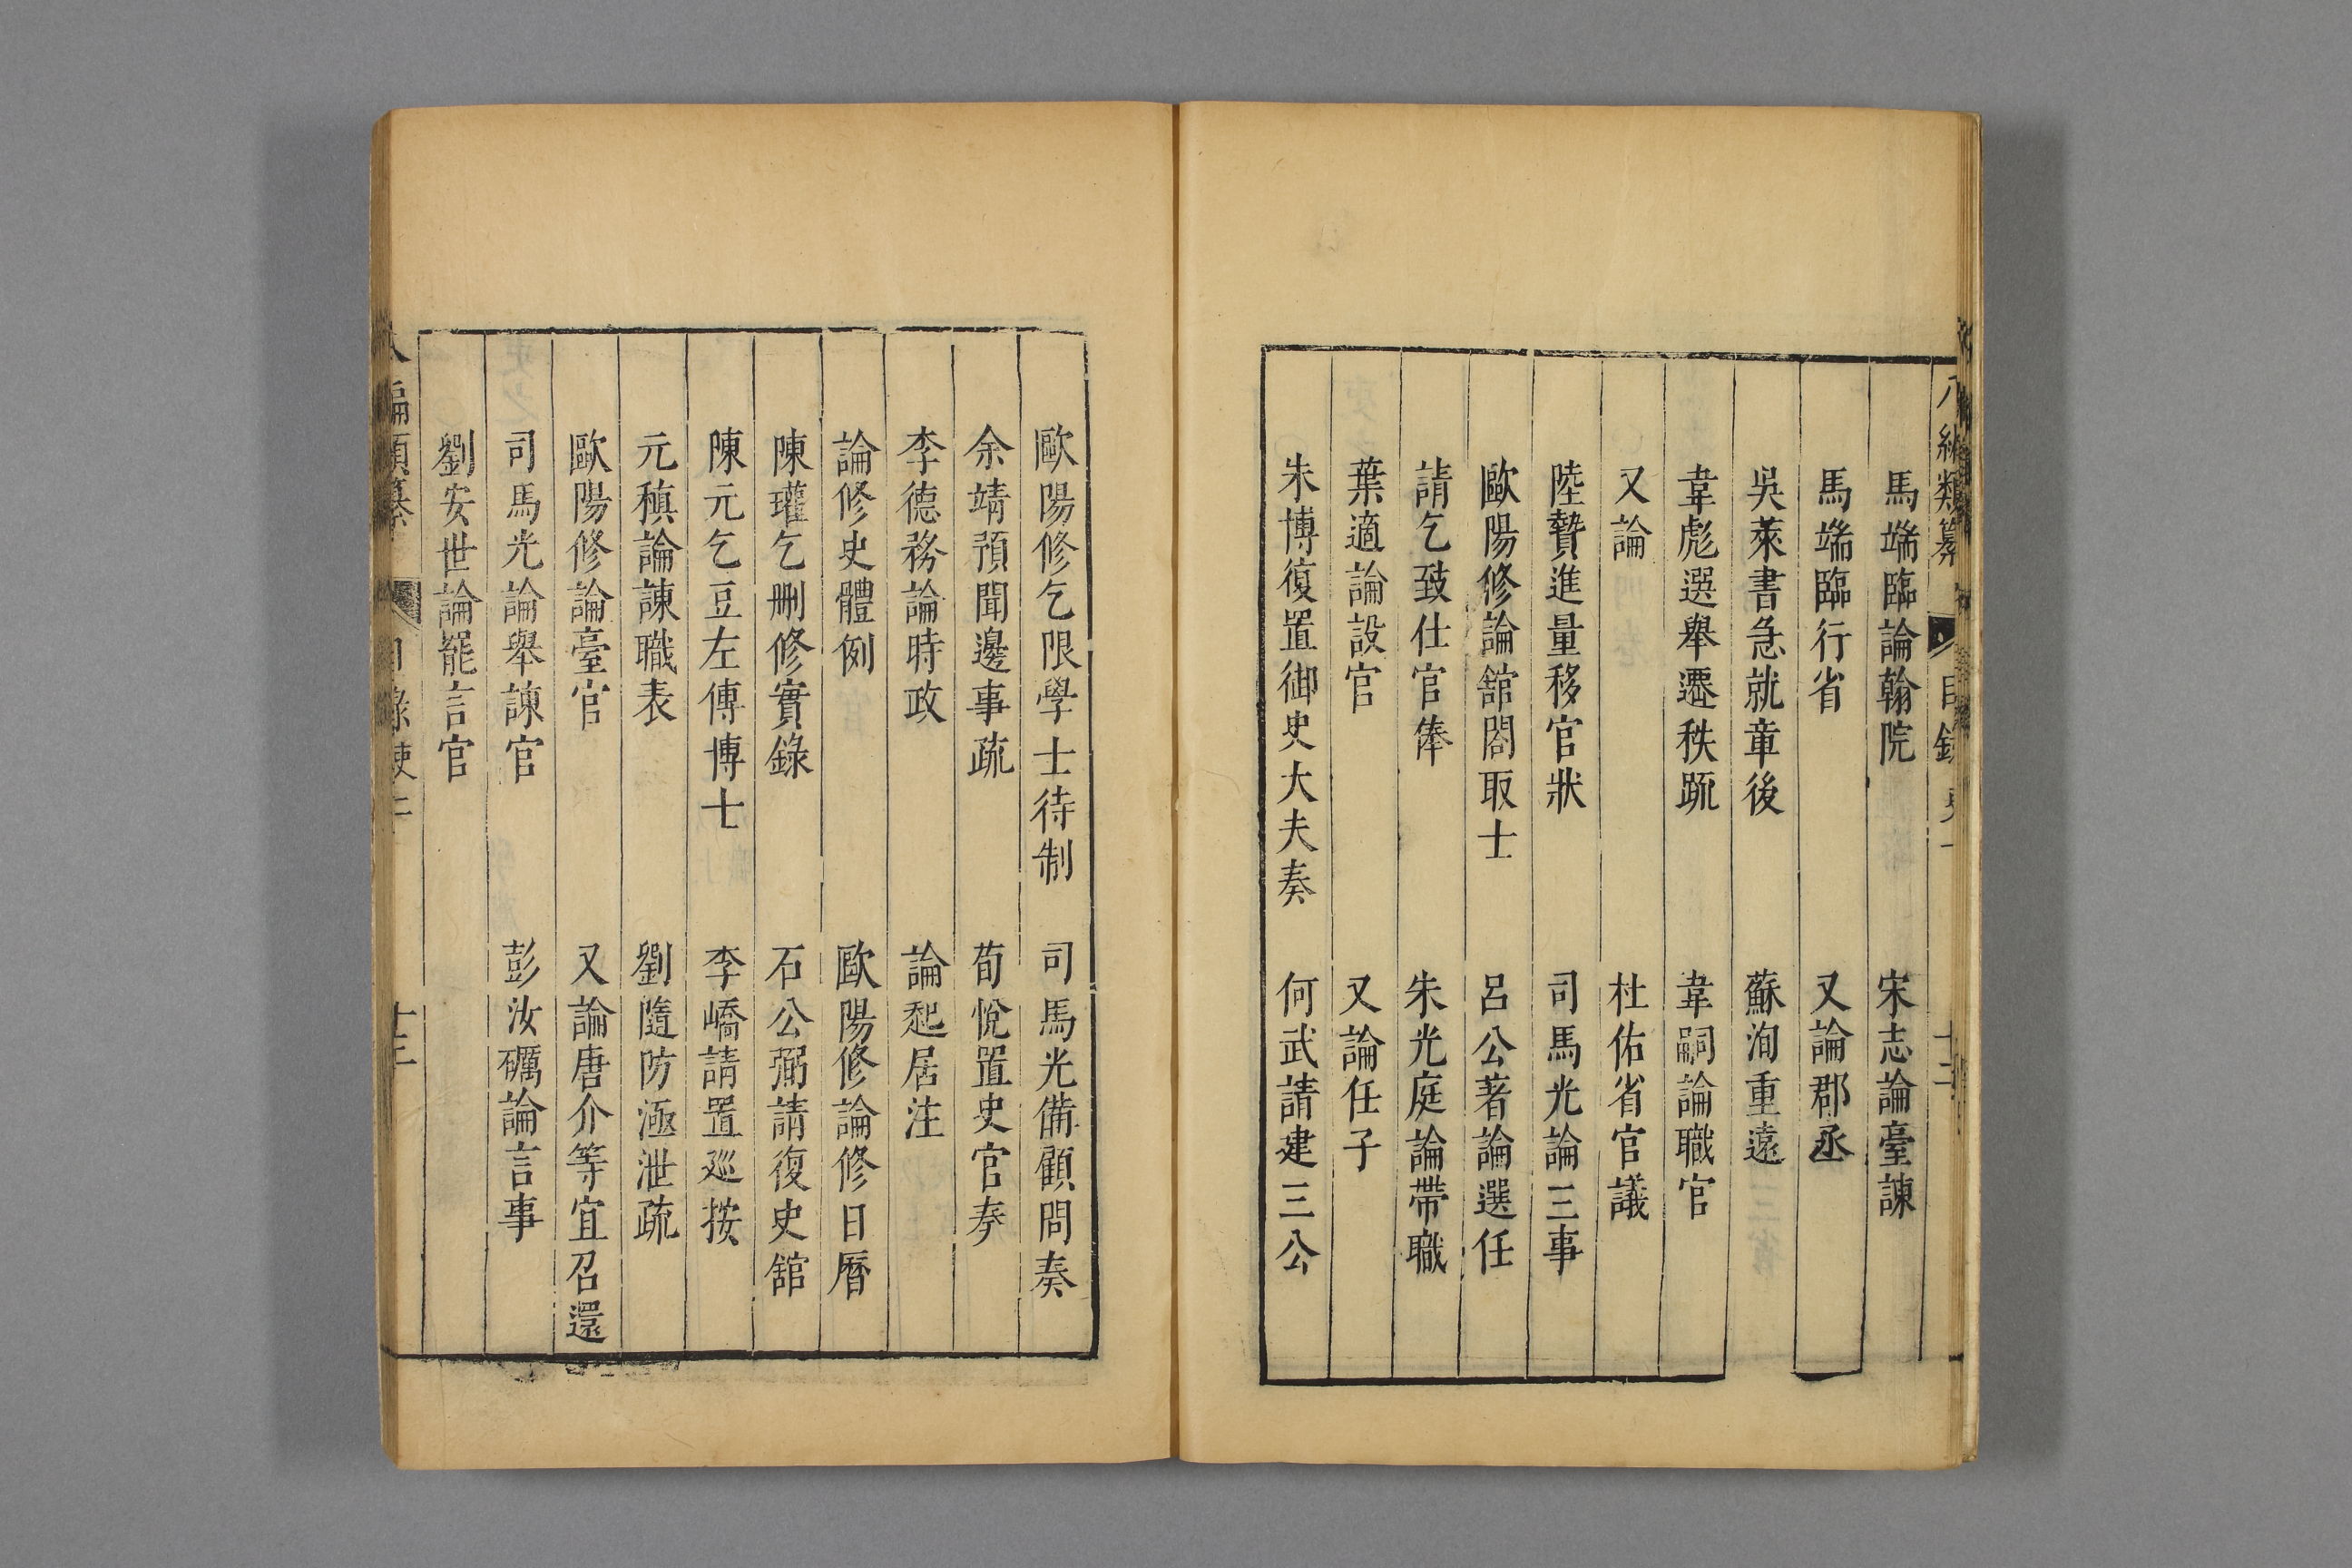 馬端臨論翰院　宋志論臺諫
馬端臨行省　又論郡丞
吳萊書急就章後　蘇洵重遠
韋彪選舉遷秩䟽　韋嗣論職官
又論　杜佑省官議
陸贄進量移官狀　司馬光論三事
歐陽修論舘閣取士　呂公著論選任
請乞致仕官俸　朱光庭論帶職
葉適論設官　又論任子
朱博復置御史大夫奏　何武請建三公
歐陽修乞限學士待制　司馬光備顧問奏
余靖預聞邊事疏　荀悅置史官奏
李德務論時政　論起居注
論修史體例　歐陽修論修日曆
陳瓘乞刪修實錄　石公弼請復史舘
陳元乞豆左傳博士　李嶠請置廵按
元稹論諫職表　劉隨防漏泄疏
歐陽修論臺官　又論唐介等宜召還
司馬光論舉諫官　彭汝礪論言事
劉安世論罷言官